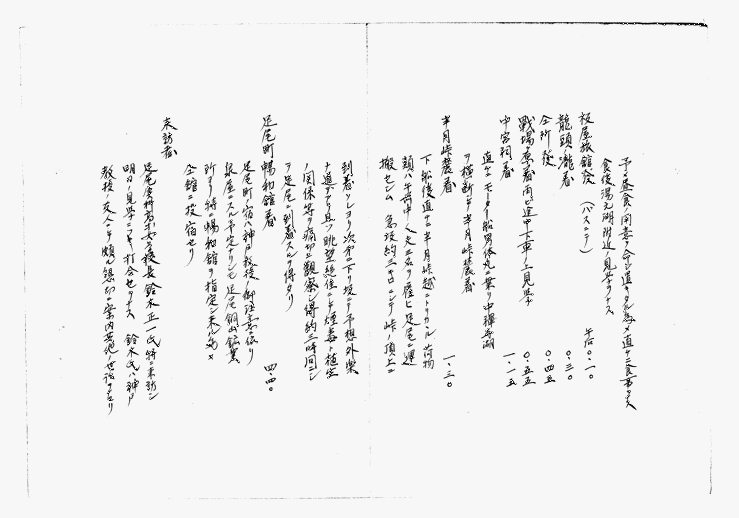 予メ昼食ノ用意ヲ命ジ置キタル為メ直チニ食事ヲナス
食後湯元湖附近ノ見学ヲナス
板屋旅館発 (バスニテ) 午后〇.一〇
龍頭ノ滝着 〇.三〇
仝所発 〇.四五
戦場ヶ原着雨ヒ途中下車ノ上見学 〇.五五
中宮祠着 一.一五
直チニモーター船男体丸ニ乗リ中禅寺湖
ヲ横断シテ半月峠麓着
半月峠麓着 一.三〇
下船後直チニ半月峠越ニトリカヽル 荷物
類ハ午前中人夫二名ヲ雇ヒ足尾ニ運
搬セシム 急坂約三キロニシテ峠ノ頂上ニ
到着ソレヨリ次第ニ下リ坂ニテ予想外楽
ナ道デアリ且ツ眺望絶佳ニテ煙毒ト植生
ノ関係等ヲ痛切ニ観察シ得約三時間ニシ
テ足尾ニ到着スルヲ得タリ
足尾町暢和館着 四.四〇
足尾町ノ宿ハ神戸教授ノ御注意ニ依リ
泉屋ニスル予定ナリシモ足尾銅山鉱業
所ヨリ特ニ暢和館ヲ指定シ来レル為メ
仝館ニ投宿セリ
来訪者
足尾実科高等女学校長鈴木正一氏特ニ来訪シ
明日ノ見学ニツキ打合セヲナス 鈴木氏ハ神戸
教授ノ友人ニテ頗ル懇切ニ案内其他ノ世話ヲナセリ